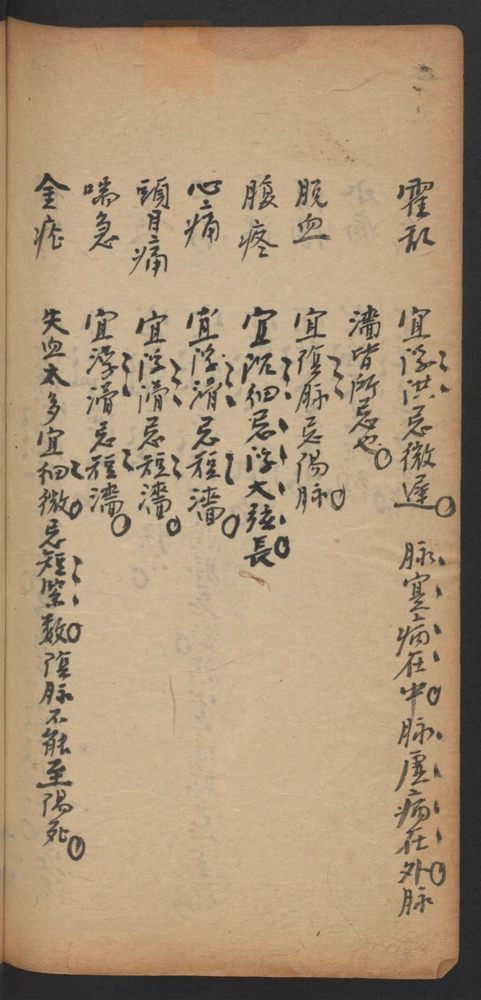 霍乱 宜浮洪忌微遲。脉実病在中。脉虚病在外。脉
濇皆所忌也。
脱血 宜陰脉忌陽脉。
腹疼 宜沉细忌浮大弦長。
心痛 宜浮滑忌短濇。
頭目痛 宜浮滑忌短濇。
喘急 宜浮滑忌短濇。
金疮 失血太多宜细微。忌短紧数。陰脉不能至陽死。